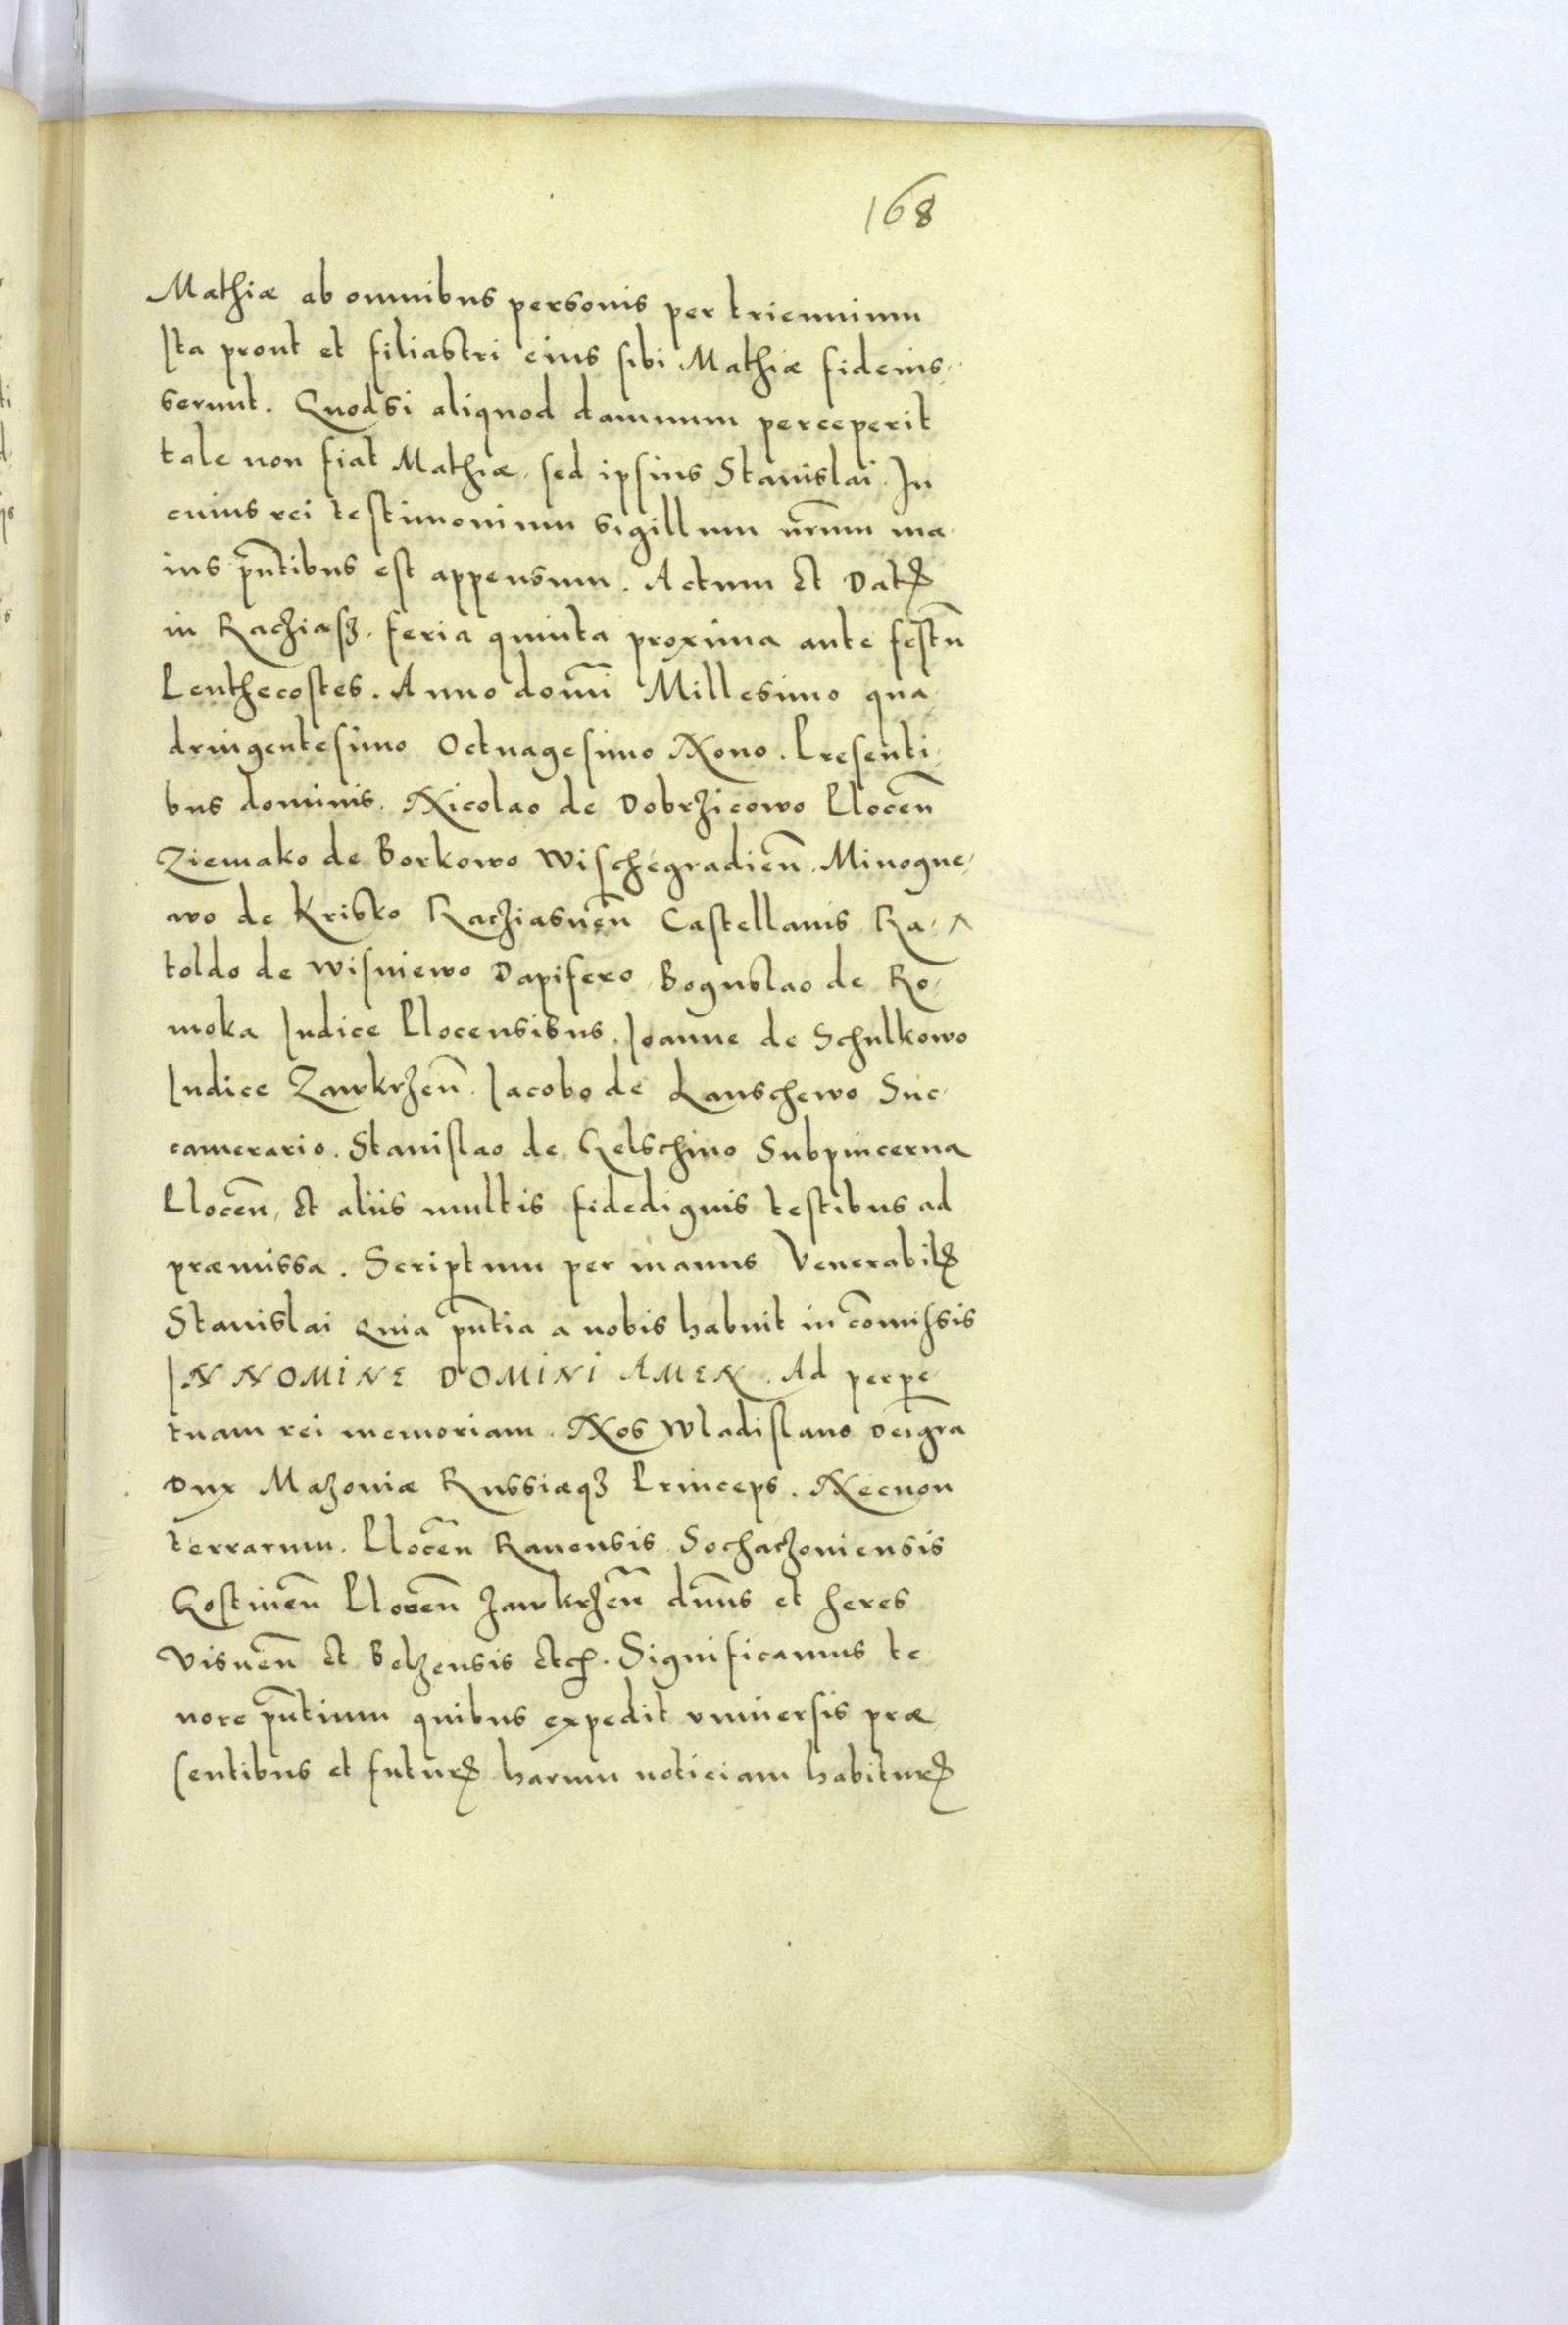 168
Mathiæ ab omnibus personis per triennium
Ita prout et filiastri eius sibi Mathiæ fideius-
serunt. Quodsi aliquod damnum perceperit
tale non fiat Mathiæ, sed ipsius Stanislai. In
cuius rei testimonium sigillum nr̃um ma
ius pn̄tibus est appensum. Actum et Datꝝ
in Racziasz, feria quinta proxima ante festū
Penthecostes. Anno domī Millesimo qua
dringentesimo Octuagesimo Nono. Presenti,
bus dominis. Nicolao de Dobrzicowo Plocen̄
Ziemako de Borkowo Wischegradien̄. Minogne,
wo de Kristo Racziasnen̄ Castellanis Ra-
toldo de Wisniewo Dapifero, Boguslao de Ro,
moka Iudice Plocensibus. Ioanne de Schulkowo
Iudice Zawkrzen̄. Iacobo de Lanschewo Suc
camerario. Stanislao de Gelschino Subpincerna
Plocen̄, et aliis multis fidedignis testibus ad
præmissa. Scriptum per manus Venerabilꝝ
Stanislai quia pn̄tia a nobis habuit in com̄issis
IN NOMINE DOMINI AMEN. Ad perpe
tuam rei memoriam. Nos Wladislaus Dei gr̄a
Dux Mazoniæ Russiæqꝫ Princeps. Necnon
terrarum. Plocen̄ Rauensis Sochaczouiensis
Gostinen̄ Plocen̄ Zawkrzen̄ dn̄us et heres
Visnen̄ et Belzensis etc. Significamus te
nore pn̄tium quibus expedit vniuersis præ
sentibus et futurꝝ harum noticiam habiturꝝ